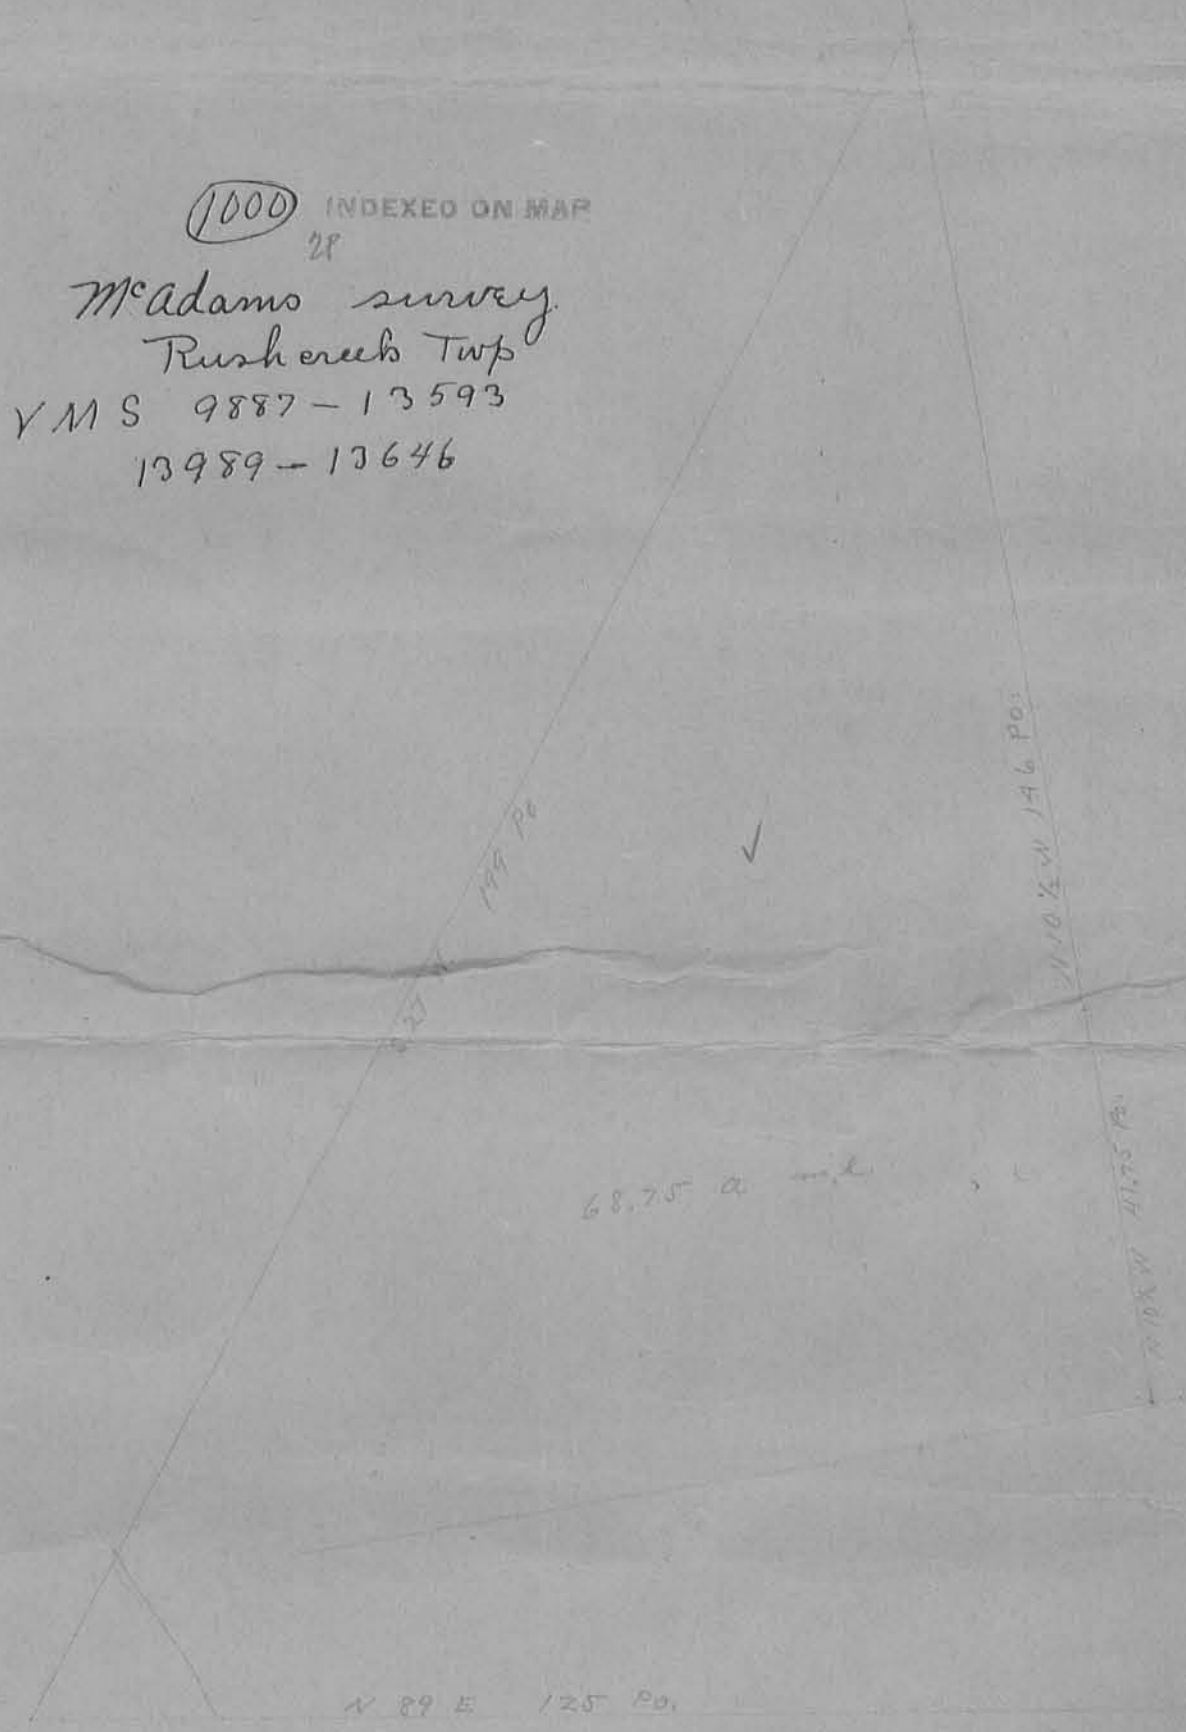 1000 INDEXED ON MAP
28
McAdams survey.
Rushcreek Twp
VMS 9887-13593
13989-13646
N 10 1/2 W 146 Po.
199 Po
68.75 a m.l.
41.75 Po.
N 89 E 125 Po.